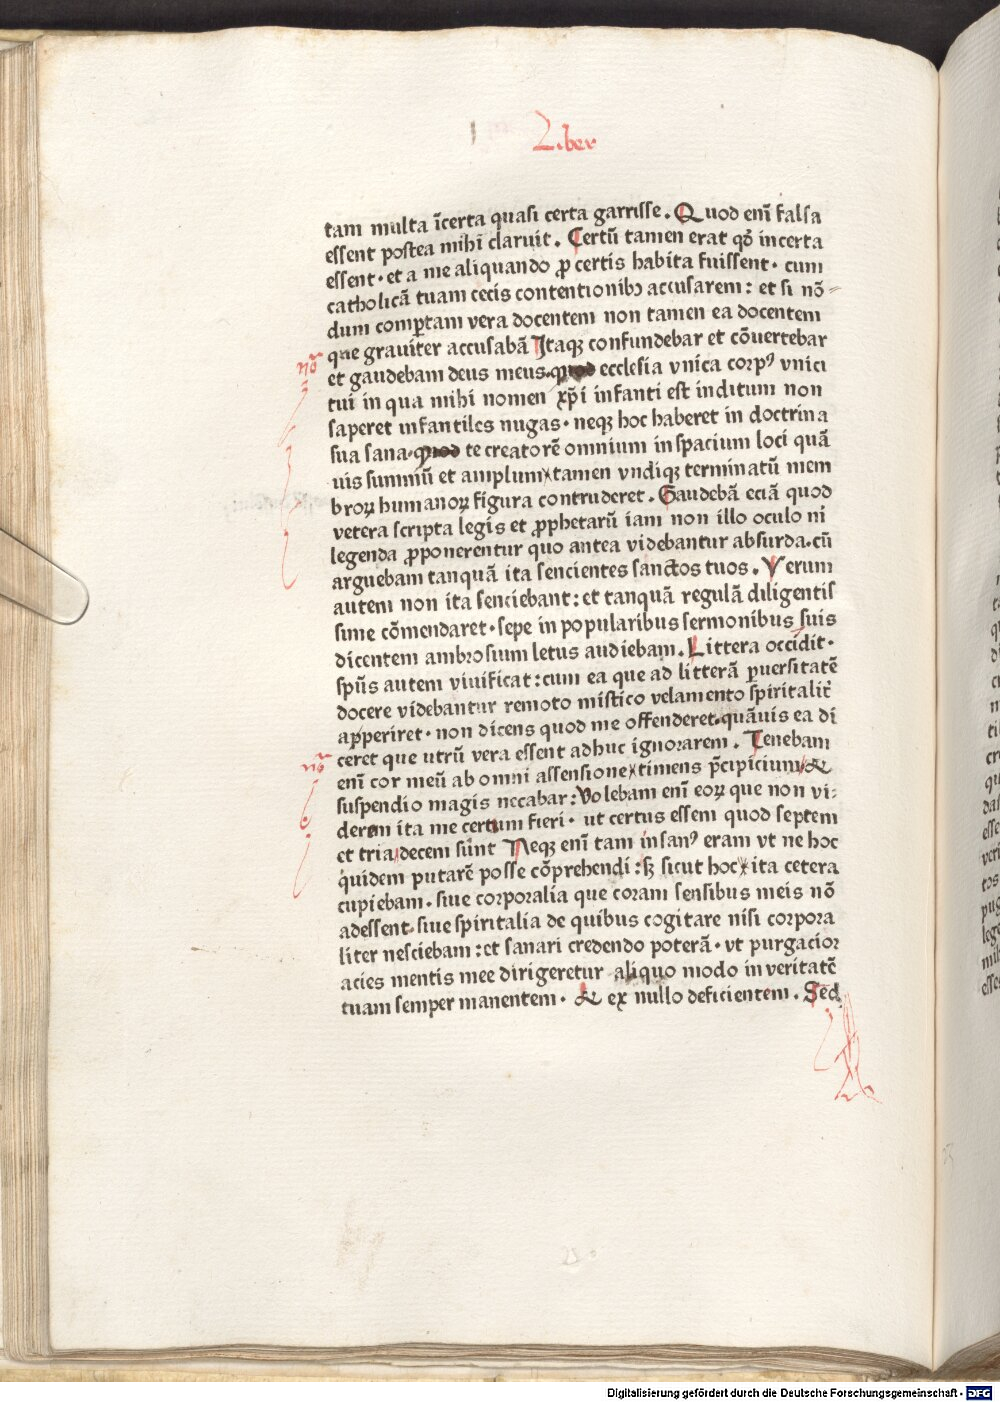 Liber
tam multa īcerta quasi certa garrisse. Quod enī falsa
essent postea mihi claruit. Certū tamen erat qđ incerta
essent· et a me aliquando ꝓ certis habita fuissent· cum
catholicā tuam cecis contentionibꝫ accusarem: et si nō-
dum comꝑtam vera docentem non tamen ea docentem
que grauiter accusabā Itaqꝫ confundebar et cōuertebar
et gaudebam deus meus· quod ecclesia vnica corpꝰ vnici
tui in qua mihi nomen xp̄i infanti est inditum non
saperet infantiles nugas· neqꝫ hoc haberet in doctrina
sua sana· quod te creatorē omnium in spacium loci quā
uis summū et amplum tamen vndiqꝫ terminatū mem
broꝝ humanoꝝ figura contruderet. Gaudebā eciā quod
vetera scripta legis et ꝓphetarū iam non illo oculo ni
legenda ꝓponerentur quo antea videbantur absurda· cū
arguebam tanquā ita sencientes sanctos tuos. Verum
autem non ita senciebant: et tanquā regulā diligentis
sime cōmendaret· sepe in popularibus sermonibus suis
dicentem ambrosium letus audiebam. Littera occidit·
sp̄us autem viuificat: cum ea que ad litterā ꝑuersitatē
docere videbantur remoto mistico velamento spiritalit̄
apperiret· non dicens quod me offenderet· quāuis ea di
ceret que utrū vera essent adhuc ignorarem. Tenebam
enī cor meū ab omni assensione timens p̄cipicium &
suspendio magis necabar: Volebam enī eoꝝ que non vi:
derem ita me certum fieri· ut certus essem quod septem
et tria decem sunt Neqꝫ enī tam insanꝰ eram vt ne hoc
quidem putarē posse cōprehendi: sꝫ sicut hoc ita cetera
cupiebam· siue corporalia que coram sensibus meis nō
adessent· siue spiritalia de quibus cogitare nisi corpora
liter nesciebam: et sanari credendo poterā· vt purgacior
acies mentis mee dirigeretur aliquo modo in veritatē
tuam semper manentem· & ex nullo deficientem. Sed
Digitalisierung gefördert durch die Deutsche Forschungsgemeinschaft - DFG